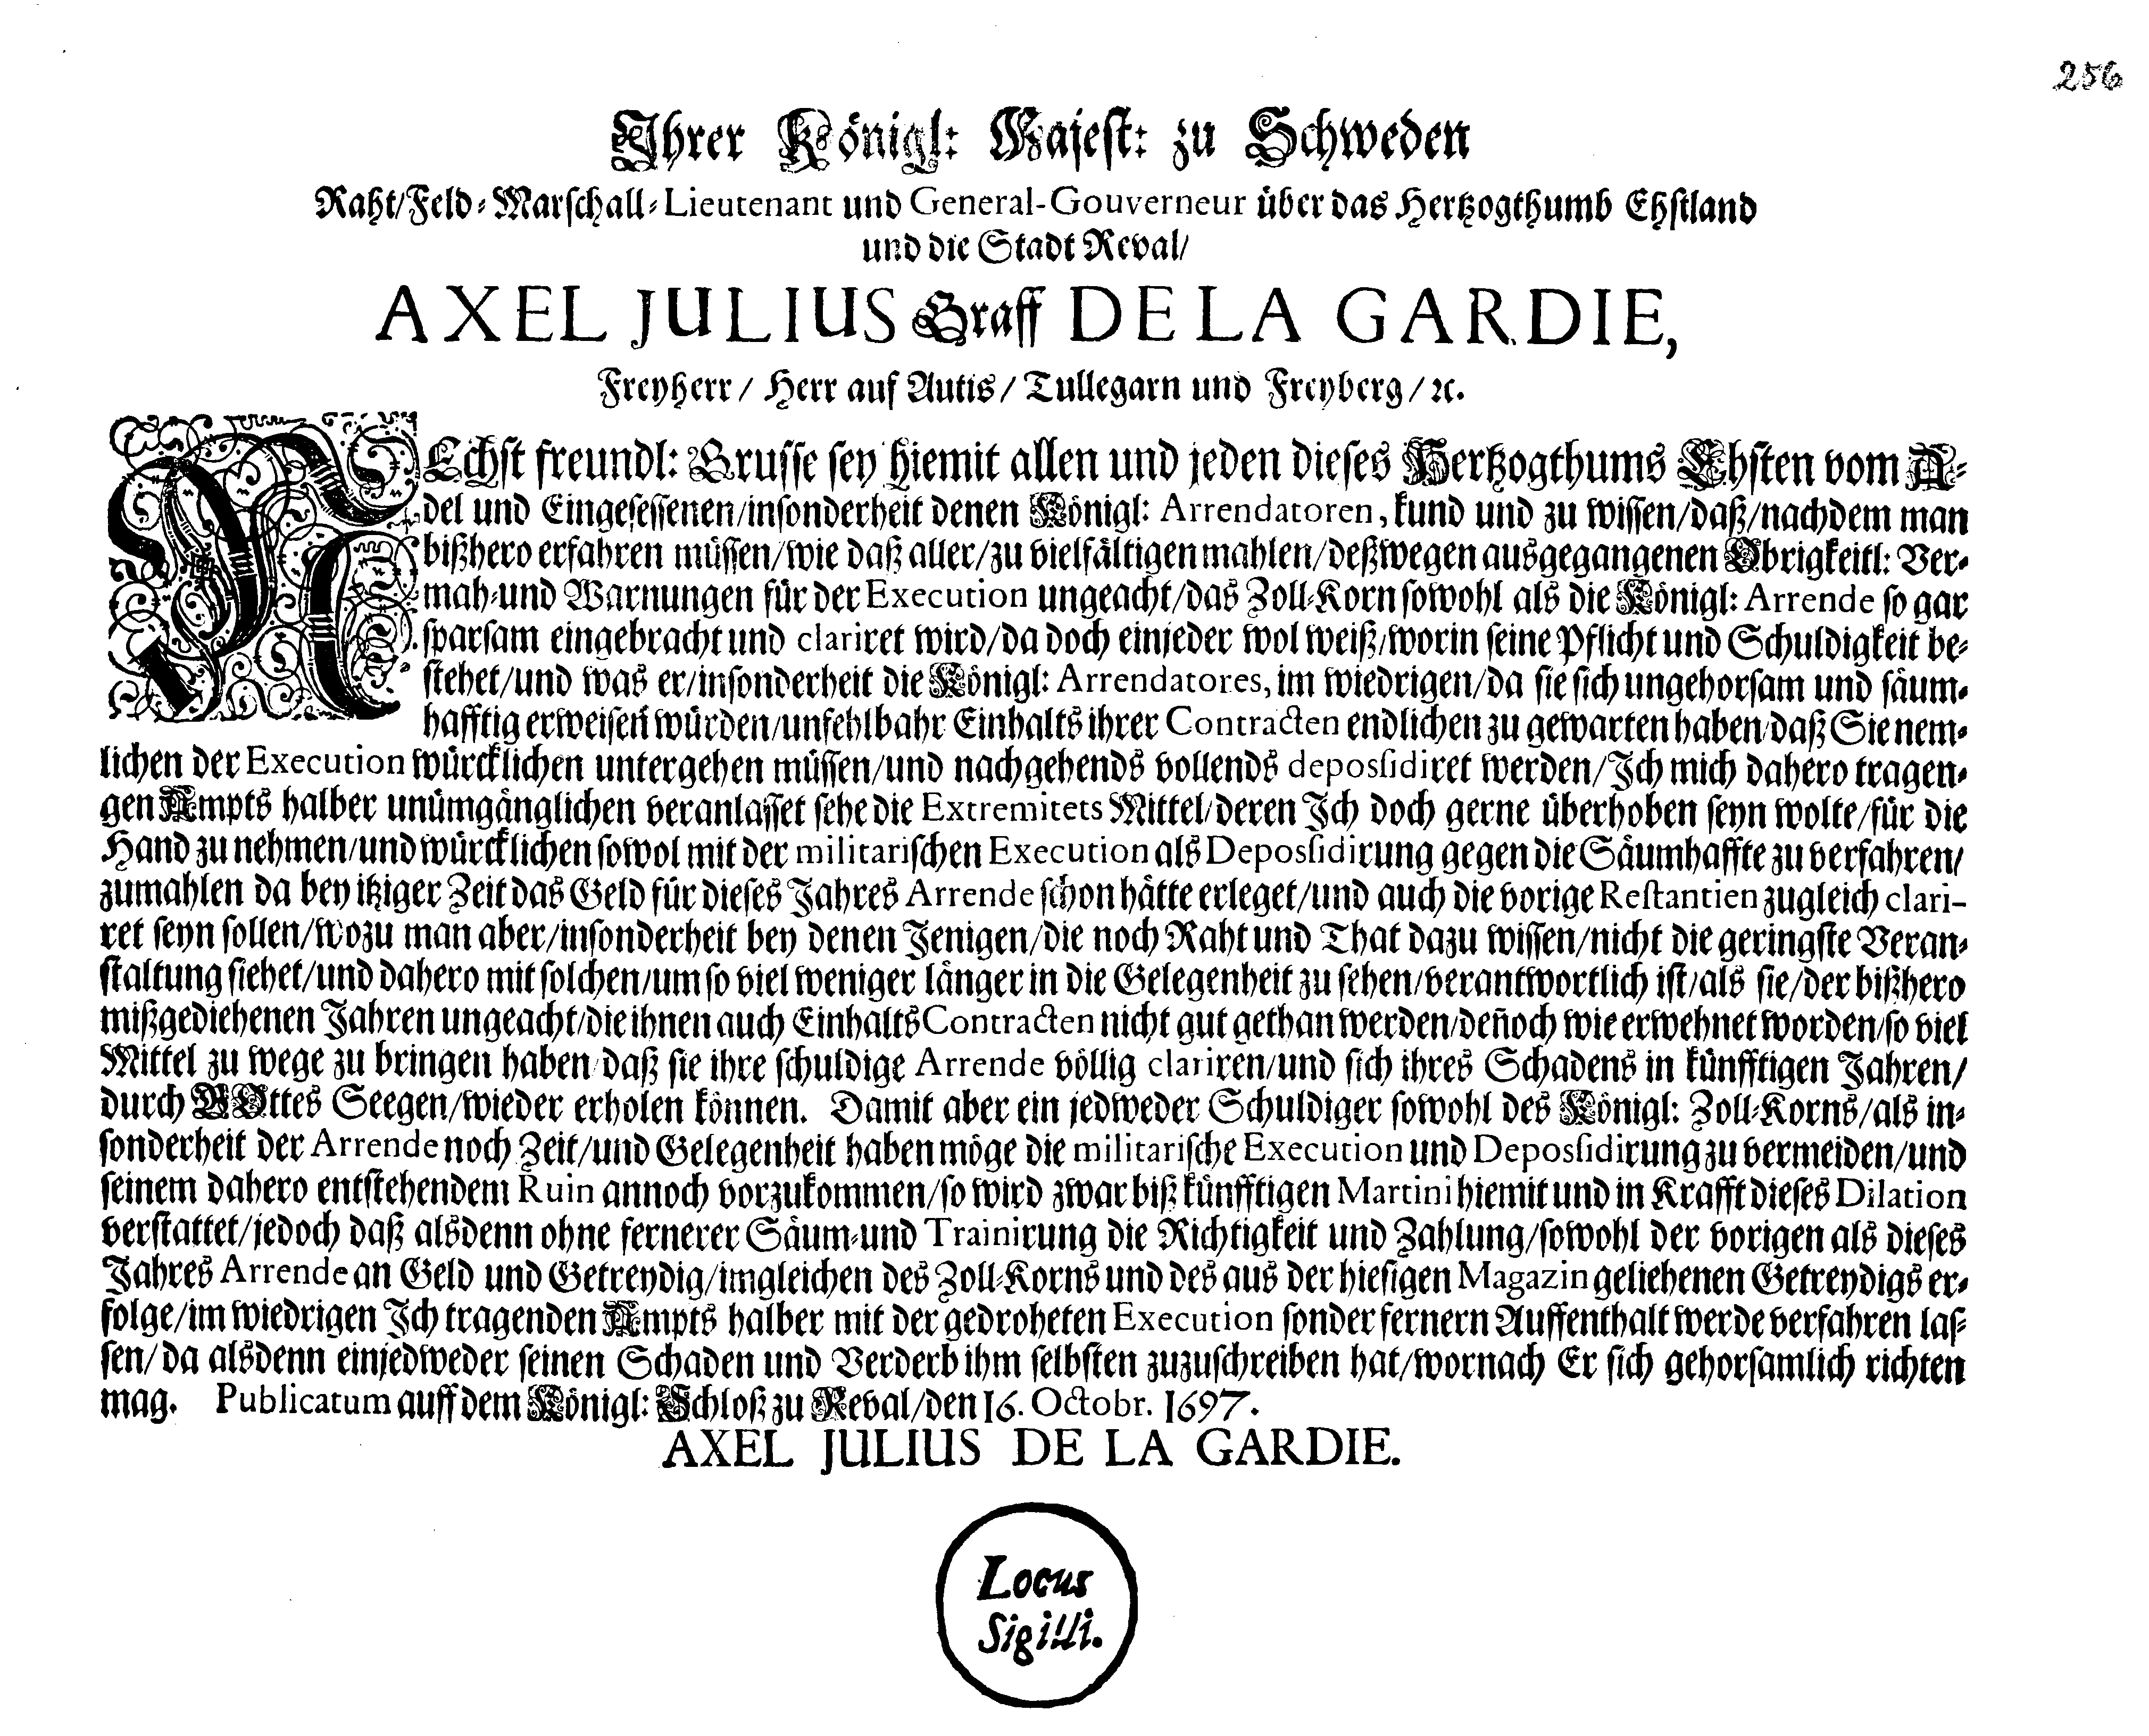 256
Ihrer Königl: Majest: zu Schweden
Raht/Feld-Marschall-Lieutenant und General-Gouverneur über das Hertzogthumb Ehstland
und die Stadt Reval/
AXEL JULIUS Graff DE LA GARDIE,
Freyherr/ Herr auf Autis/ Tullegarn und Freyberg/ ꝛc.
NEchst freundl: Grusse sey hiemit allen und jeden dieses Hertzogthums Ehsten vom A-
del und Eingesessenen/insonderheit denen Königl: Arrendatoren, kund und zu wissen/daß/nachdem man
bißhero erfahren müssen/wie daß aller/zu vielfältigen mahlen/deßwegen ausgegangenen Obrigkeitl: Ver-
mah-und Warnungen für der Execution ungeacht/das Zoll-Korn sowohl als die Königl: Arrende so gar
sparsam eingebracht und clariret wird/da doch einjeder wol weiß/worin seine Pflicht und Schuldigkeit be-
stehet/und was er/insonderheit die Königl: Arrendatores, im wiedrigen/da sie sich ungehorsam und säum-
hafftig erweisen würden/unfehlbahr Einhalts ihrer Contracten endlichen zu gewarten haben/daß Sie nem-
lichen der Execution würcklichen untergehen müssen/und nachgehends vollends depossidiret werden/Ich mich dahero tragen-
gen Ampts halber unümgänglichen veranlasset sehe die Extremitets Mittel/deren Ich doch gerne überhoben seyn wolte/für die
Hand zu nehmen/und würcklichen sowol mit der militarischen Execution als Depossidirung gegen die Säumhaffte zu verfahren/
zumahlen da bey itziger Zeit das Geld für dieses Jahres Arrende schon hätte erleget/und auch die vorige Restantien zugleich clari-
ret seyn sollen/wozu man aber/insonderheit bey denen Jenigen/die noch Raht und That dazu wissen/nicht die geringste Veran-
staltung siehet/und dahero mit solchen/um so viel weniger länger in die Gelegenheit zu sehen/verantwortlich ist/als sie/der bißhero
mißgediehenen Jahren ungeacht/die ihnen auch Einhalts Contracten nicht gut gethan werden/deñoch wie erwehnet worden/so viel
Mittel zu wege zu bringen haben/daß sie ihre schuldige Arrende völlig clariren/und sich ihres Schadens in künfftigen Jahren/
durch GOttes Seegen/wieder erholen können. Damit aber ein jedweder Schuldiger sowohl des Königl: Zoll-Korns/als in-
sonderheit der Arrende noch Zeit/und Gelegenheit haben möge die militarische Execution und Depossidirung zu vermeiden/und
seinem dahero entstehendem Ruin annoch vorzukommen/so wird zwar biß künfftigen Martini hiemit und in Krafft dieses Dilation
verstattet/jedoch daß alsdenn ohne fernerer Säum-und Trainirung die Richtigkeit und Zahlung/sowohl der vorigen als dieses
Jahres Arrende an Geld und Getreydig/imgleichen des Zoll-Korns und des aus der hiesigen Magazin geliehenen Getreydigs er-
folge/im wiedrigen Ich tragenden Ampts halber mit der gedroheten Execution sonder fernern Auffenthalt werde verfahren las-
sen/da alsdenn einjedweder seinen Schaden und Verderb ihm selbsten zuzuschreiben hat/wornach Er sich gehorsamlich richten
mag. Publicatum auff dem Königl: Schloß zu Reval/den 16. Octobr. 1697.
AXEL JULIUS DE LA GARDIE.
Locus
Sigilli.